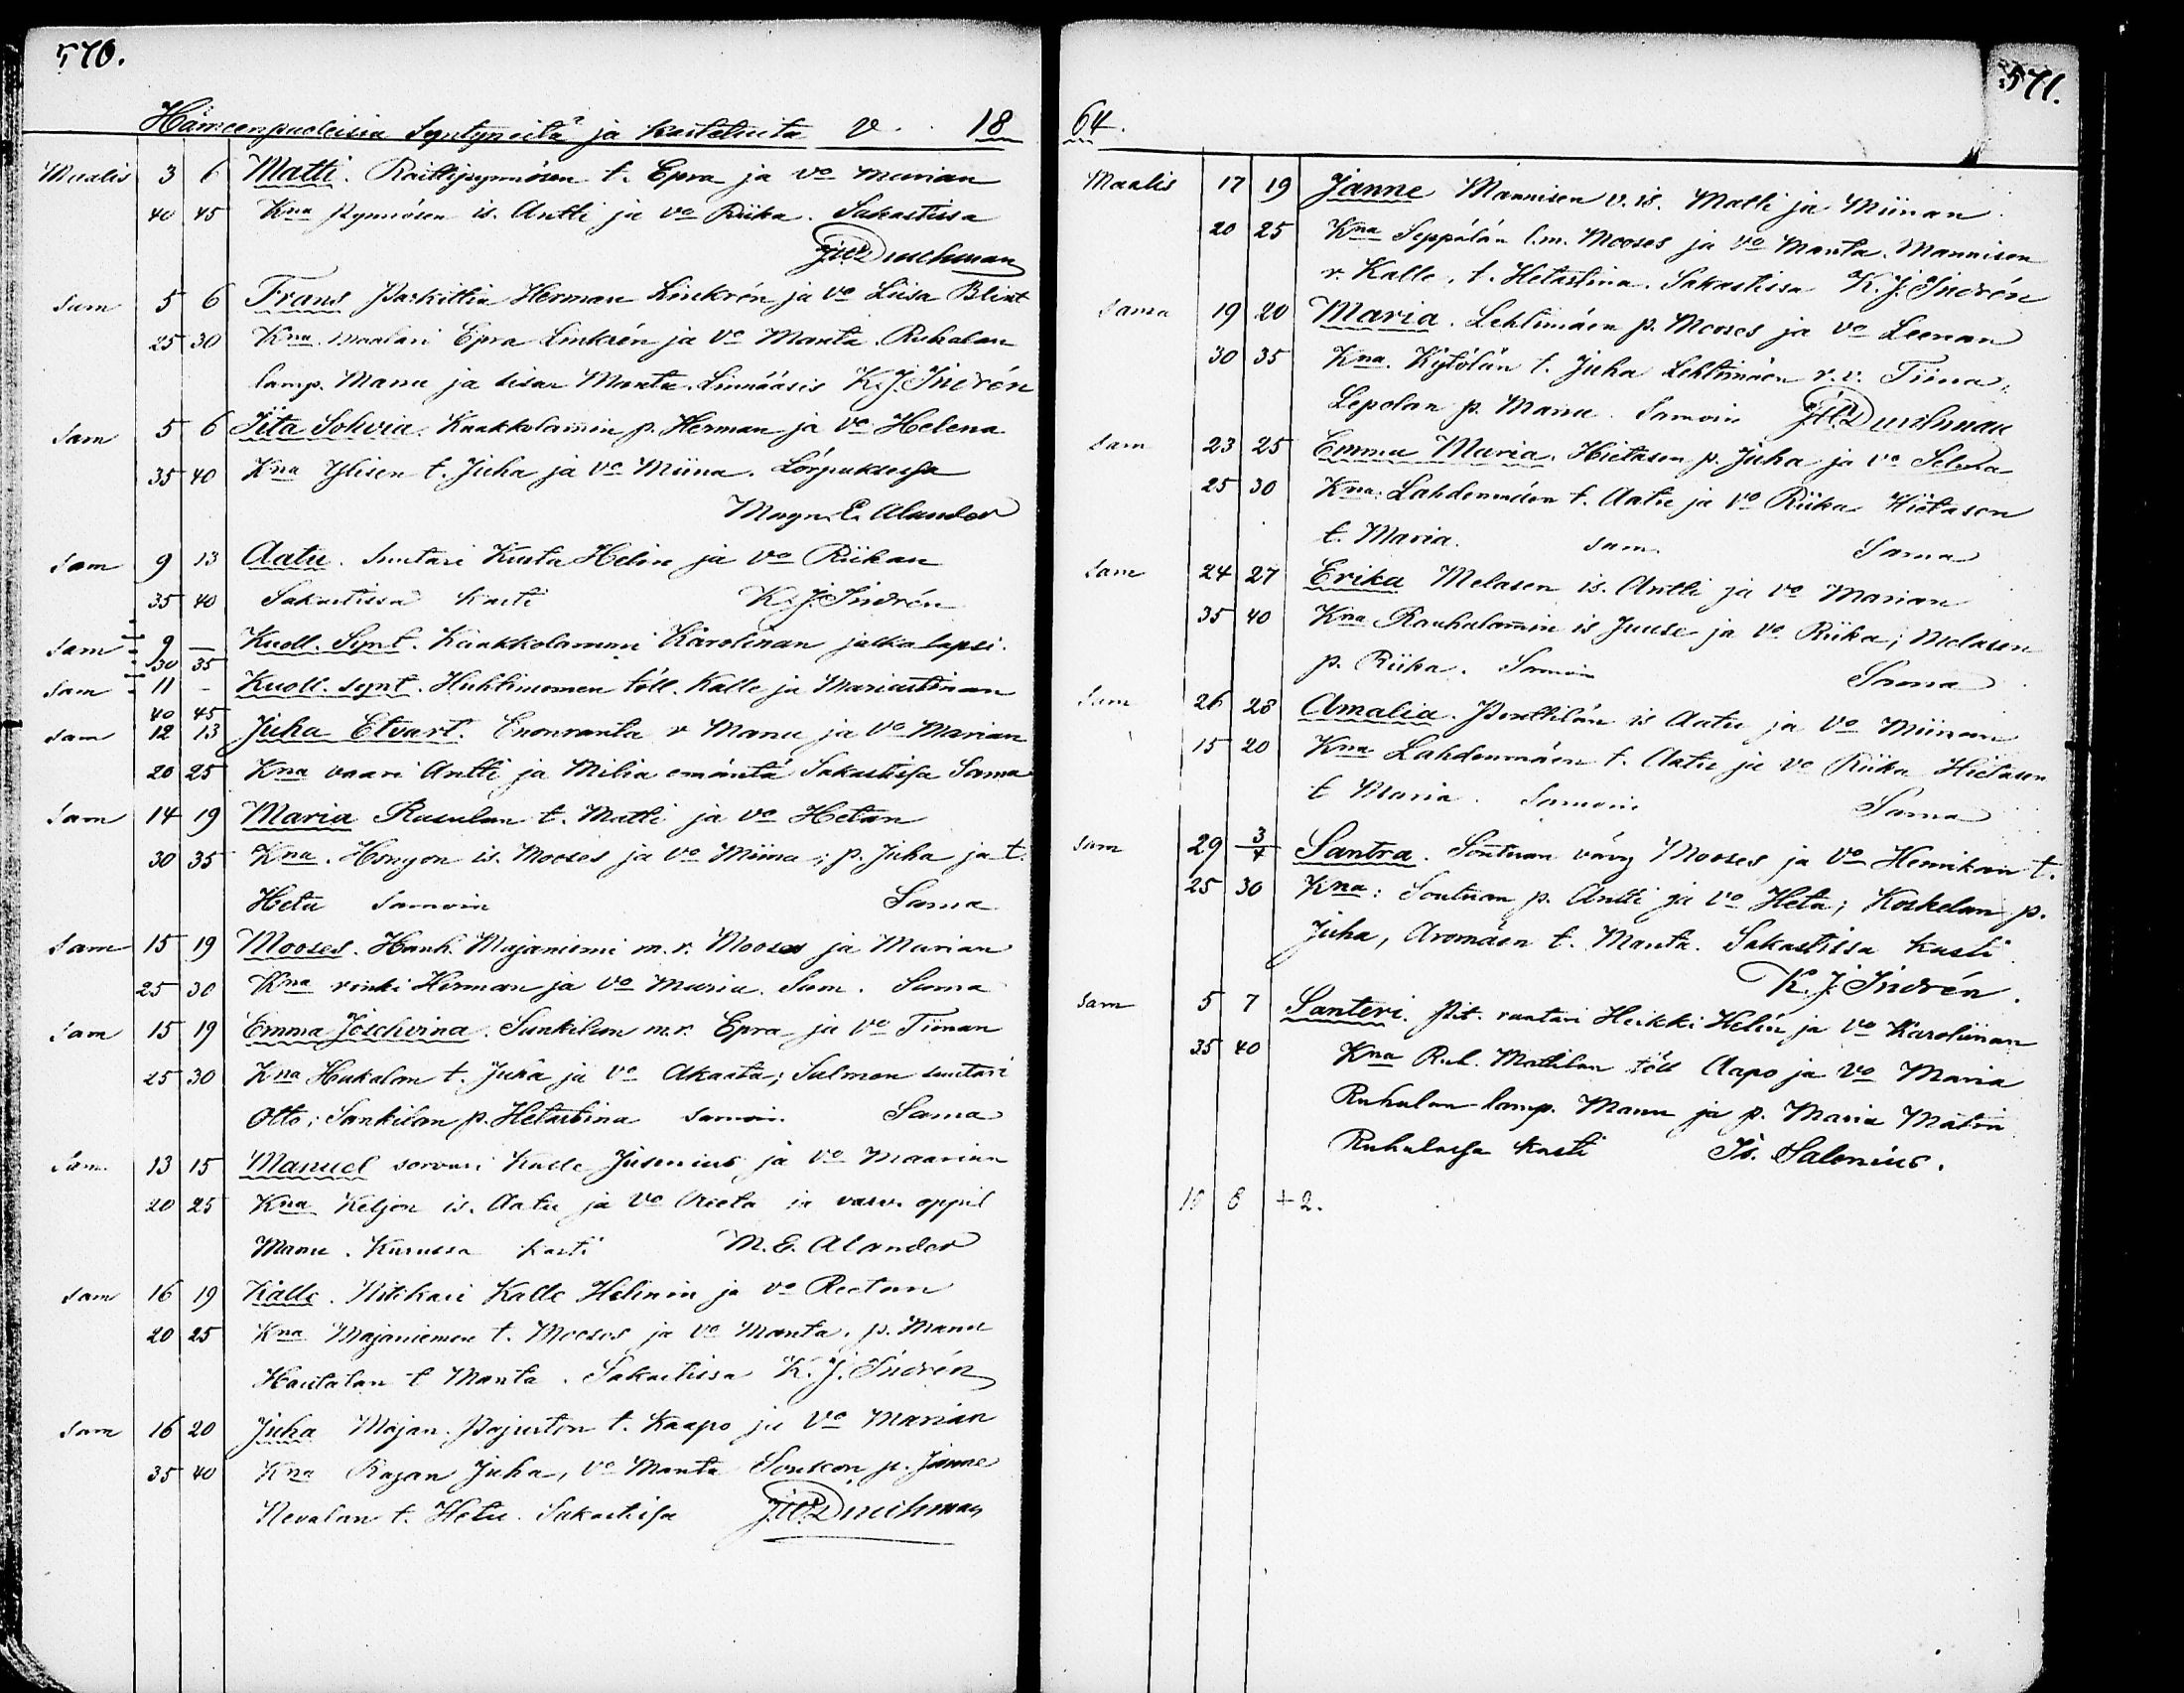 570.
Hämeenpuoleisia Syntyneitä ja kastetuita V. 18
Maalis 3 6 Matti. Raittipynnösen t. Epra ja vo Marian
40 45 Kna Pynnösen is. Antti ja vo Riika. Sakastissa
Durchman
Sam 5 6 Frans Herman Linkrén ja vo Liisa
25 30 Kna. Maalari Epra Linkrén ja vo Manta. Ruhalan
lamp. Manu ja sisar Manta. K. J. Indrén
Sam 5 6 Iita Sohvia. Kaakkolammin p. Herman ja vo Helena
35 40 Kna Ylisen t. Juha ja vo Miina.
Magn. E. Alander
Sam 9 13 Aatu. Suutari Kusta Helin ja vo Riikan
35 40 Sakastissa kasti K. J. Indrén
Sam 9 — Kuoll. Synt. Kaakkolammi Karolinan jalkalapsi.
30 35
Sam 11 - Kuoll. synt. Huhtimomen töll. Kalle ja Mariastiinan
40 45
Sam 12 13 Juha Etvart. Enonranta r Manu ja vo Marian
20 25 Kna vaari Antti ja Milia emäntä Sakastissa Sama
Sam 14 19 Maria Rusulan t. Matti ja vo Hetan
30 35 Kna. Hongon is. Mooses ja vo Miina; p. Juha ja t.
Heta Samoin Sama
Sam 15 19 Mooses. Hanh. Majaniemi m. r. Mooses ja Marian
25 30 Kna renki Herman ja vo Maria. Sam. Sama
Sam 15 19 Emma Joschvina. Sankilan m. r. Epra ja vo Tiinan
25 30 Kna Hukalan t. Juha ja vo Akaata; Salmen suutari
Otto; Sankilan p. Hetastiina samoin. Sama
Sam 13 15 Manuel sorvari Kalle Jusenius ja vo Maarian
20 25 Kna Keljon is. Aatu ja vo Reeta ja oppil
Manu. Kurussa kasti M. E. Alander
Sam 16 19 Kalle. Nitikari Kalle Helinin ja vo Reetan
20 25 Kna Majaniemen t. Mooses ja vo Manta. p. Manu
Hautalan t Manta. Sakastissa K. J. Indrén
Sam 16 20 Juha Majan. Pajuston t. Kaapo ja vo Marian
35 40 Kna Rajan Juha, vo Manta p. Janne
Nevalan t. Heta. Sakastissa Durchman
571.
64.
Maalis 17 19 Janne Mannisen v. is. Matti ja Miinan
20 25 Kna Seppälän l. m. Mooses ja vo Manta. Mannisen
r. Kalle, t. Hetastina. Sakastissa K. J. Indrén
Sama 19 20 Maria. Lehtimäen p. Mooses ja vo Leenan
30 35 Kna. Kytölän t. Juha Lehtimäen r. v. Tiina;
Lepolan p. Manu. Samoin Durchman
Sam 23 25 Emma Maria. Hietasen p. Juha ja vo Selma
25 30 Kna: Lahdenmäen t. Aatu ja vo Riika Hietasen
t. Maria. sam. Sama
Sam 24 27 Erika Melasen is. Antti ja vo Marian
35 40 Kna Rauhalammin is Juuse ja vo Riika; Melasen
p. Riika. Samoin Sama
Sam 26 28 Amalia. Penttilän is Aatu ja vo Miinan
15 20 Kna Lahdenmäen t. Aatu ja vo Riika Hietasen
t Maria. Samoin Sama
Sam 29 3/4 Santra. Sontuan vävy Mooses ja vo Henrikan t.
25 30 Kna: Sontuan p. Antti ja vo Heta; Koskelan p.
Juha, Aromäen t. Manta. Sakastissa kasti
K. J. Indrén.
Sam 5 7 Santeri. Pit. rantari Heikki Helin ja vo Karoliinan
35 40 Kna Ruh. Mattilan töll Aapo ja vo Maria
Ruhalan lamp. Manu ja p. Maria
Ruhalassa kasti Is. Salonius.
10 8 + 2.